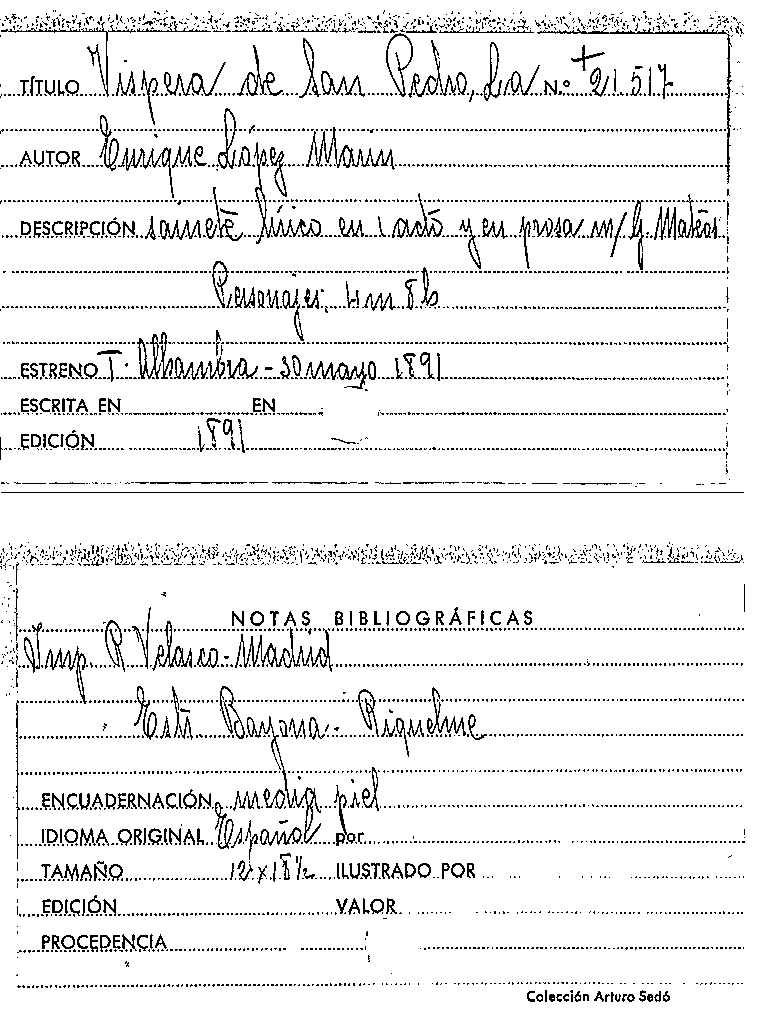 TÍTULO Vispera de San Pedro, La N.º + 21.517
AUTOR Enrique López Marin
DESCRIPCIÓN sainete lírico en 1 acto y en prosa m/ G. Mateos
Personajes, 4m 8h
ESTRENO T. Alhambra - 30 mayo 1891
ESCRITA EN EN
EDICIÓN 1891
NOTAS BIBLIOGRÁFICAS
Imp. R Velasco - Madrid
Estr. Bayona - Riquelme
ENCUADERNACIÓN media piel
IDIOMA ORIGINAL Español por
TAMAÑO 12 x 18 1/2 ILUSTRADO POR
EDICIÓN VALOR
PROCEDENCIA
Colección Arturo Sedó